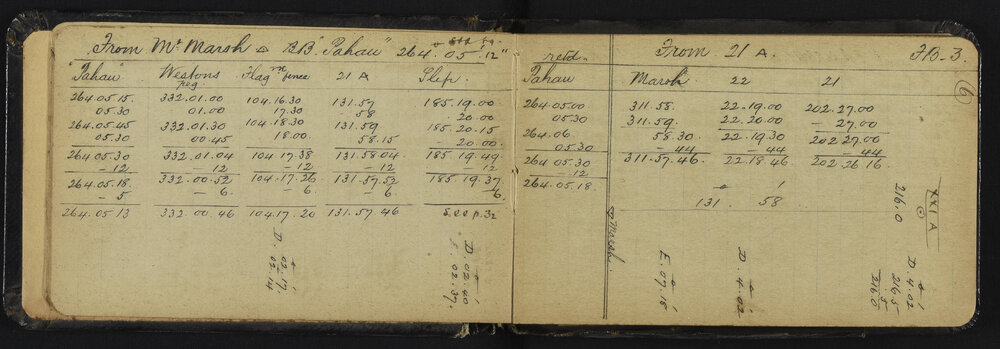 From Mt Marsh △ R.B. "Pahau" 264° 05' 12"
"Pahau" Westons peg Flag m fence 21 A Slep.
264.05.15. 332.01.00 104.16.30 131.57 185.19.00
05.30 01.00 17.30 58 20.00
264.05.45 332.01.30 104.18.30 131.59 185.20.15
05.30 00.45 18.00 58.15 - 20.00
264.05.30 332.01.04 104.17.38 131.58.04 185.19.49
- 12 12 - 12 - 12 12
264.05.18. 332.00.52 104.17.26 131.57.52 185.19.37
- 5 - 6. 6. 6 6
264.05.13 332.00.46 104.17.20 131.57.46
D. 02.17.
02.14
D. 02.40
02.37.
F.B.3
6
From 21 A.
retd
Pahau Marsh 22 21
264.05.00 311.58. 22.19.00 202.27.00
05.30 311.59. 22.20.00 - 27.00
264.06 58.30 22.19.30 202.27.00
05.30 - 44 - 44 - 44
264.05.30 311.57.46. 22.18.46 202.26.16
- 12
264.05.18 ° '
131. 58
XXI A
216.0
Marsh.
E. 07.18
D. 4.02
D. 4.02
216.5
5
216.0